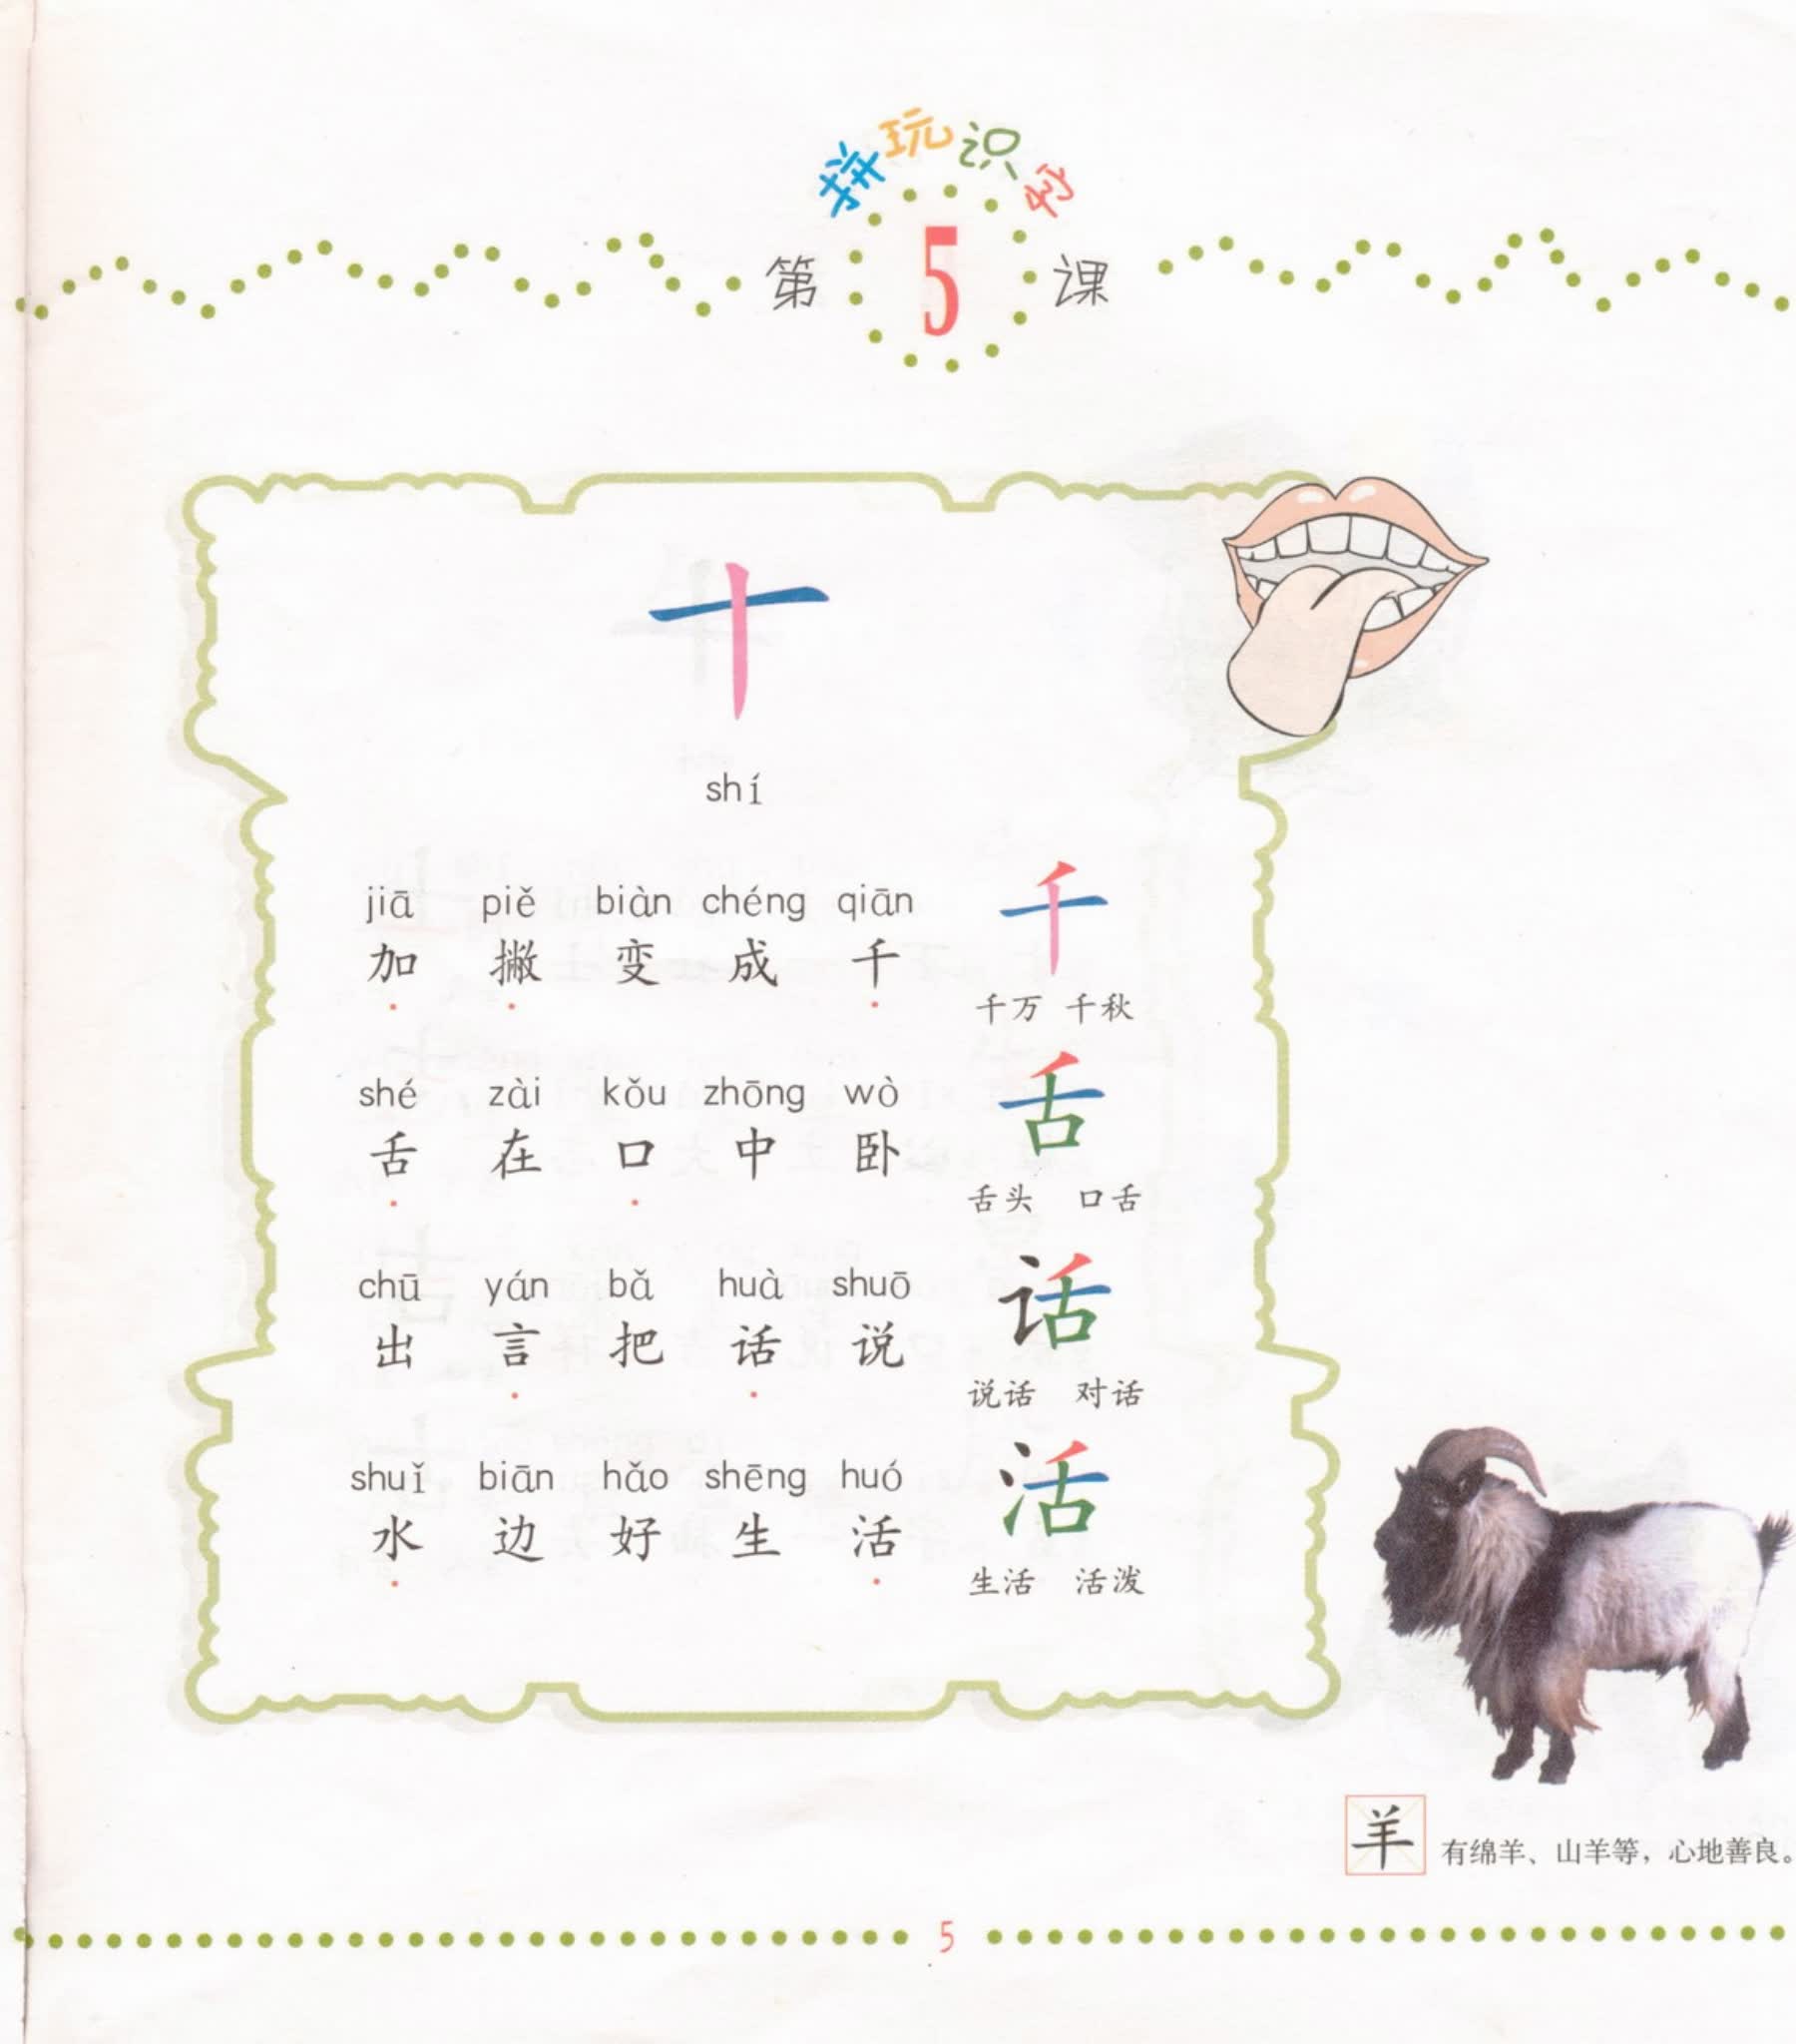 拼玩识字
第 5 课
十
shí
jiā piě biàn chéng qiān
加 撇 变 成 千
千
千万 千秋
shé zài kǒu zhōng wò
舌 在 口 中 卧
舌
舌头 口舌
chū yán bǎ huà shuō
出 言 把 话 说
话
说话 对话
shuǐ biān hǎo shēng huó
水 边 好 生 活
活
生活 活泼
羊 有绵羊、山羊等，心地善良。
5